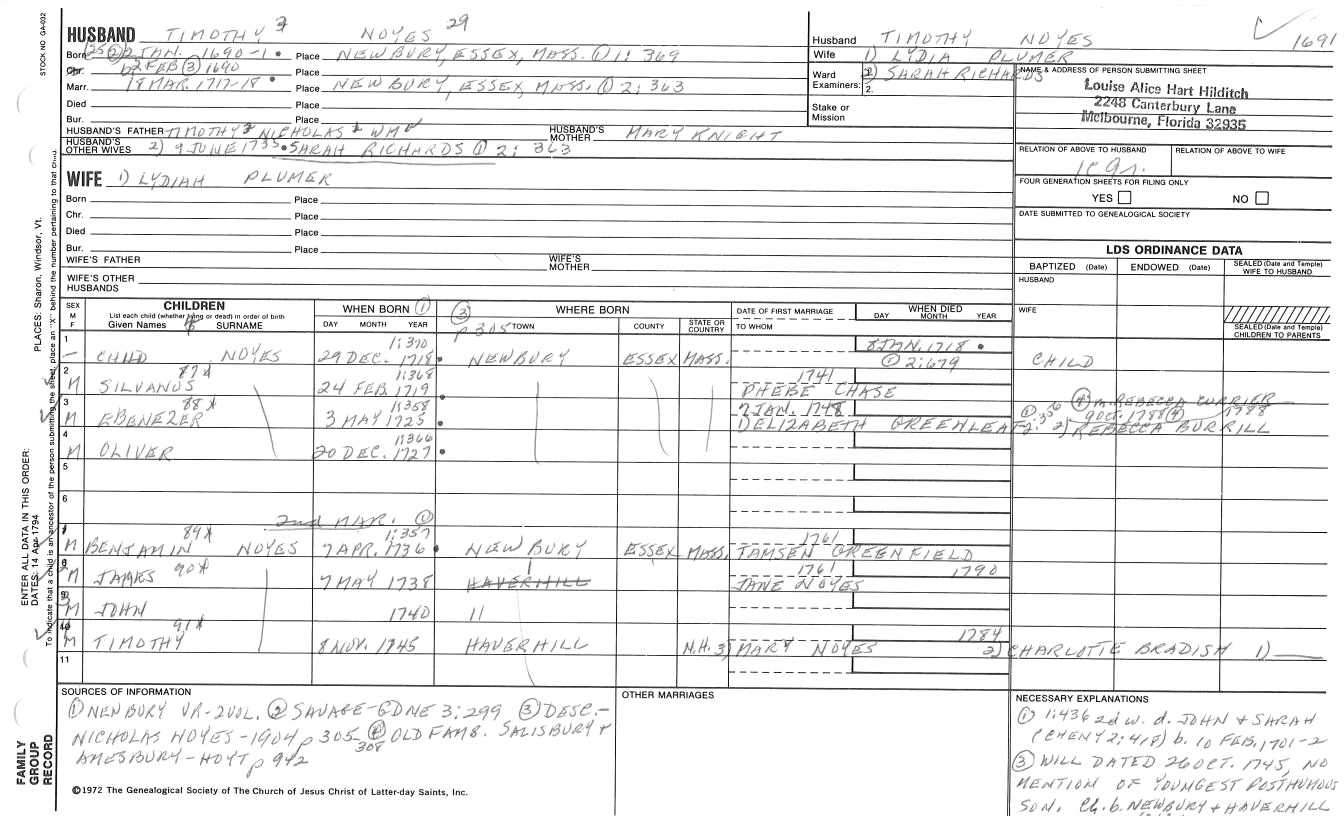 STOCK NO. GA-032
PLACES: Sharon, Windsor, Vt.
ENTER ALL DATA IN THIS ORDER:
DATES: 14 Apr 1794
To indicate that a child is an ancestor of the person submitting the sheet, place an "X" behind the number pertaining to that child.
FAMILY GROUP RECORD
HUSBAND TIMOTHY 3 NOYES 29
Born 25 ② 2 JAN. 1690-1 • Place NEWBURY, ESSEX, MASS. ① 1: 369
Chr. 2 FEB ③ 1690
Marr. 18 MAR. 1717-18 • Place NEWBURY, ESSEX, MASS. ① 2: 363
Died Place
Bur. Place
HUSBAND'S FATHER TIMOTHY 2 NICHOLAS 1 WM HUSBAND'S MOTHER MARY KNIGHT
HUSBAND'S OTHER WIVES 2) 9 JUNE 1735 • SARAH RICHARDS ① 2: 363
WIFE 1) LYDIAH PLUMER
Born Place
Chr. Place
Died Place
Bur. Place
WIFE'S FATHER WIFE'S MOTHER
WIFE'S OTHER HUSBANDS
Husband TIMOTHY NOYES 1691
Wife 1) LYDIA PLUMER
2) SARAH RICHARDS
Ward Examiners: 1. 2.
Stake or Mission
NAME & ADDRESS OF PERSON SUBMITTING SHEET
Louise Alice Hart Hilditch
2248 Canterbury Lane
Melbourne, Florida 32935
RELATION OF ABOVE TO HUSBAND RELATION OF ABOVE TO WIFE
FOUR GENERATION SHEETS FOR FILING ONLY
YES NO
DATE SUBMITTED TO GENEALOGICAL SOCIETY
LDS ORDINANCE DATA
BAPTIZED (Date) ENDOWED (Date) SEALED (Date and Temple) WIFE TO HUSBAND
HUSBAND
WIFE
SEALED (Date and Temple) CHILDREN TO PARENTS
SEX M F CHILDREN WHEN BORN ① ③ WHERE BORN DATE OF FIRST MARRIAGE WHEN DIED
List each child (whether living or dead) in order of birth
Given Names SURNAME DAY MONTH YEAR p 305 TOWN COUNTY STATE OR COUNTRY TO WHOM DAY MONTH YEAR
1 1:370 8 JAN. 1718 •
– CHILD NOYES 29 DEC. 1718 • NEWBURY ESSEX MASS. ① 2:679 CHILD
2 87x 1:368 1741
M SILVANUS 24 FEB. 1719 • PHEBE CHASE
3 88x 1:358 7 JAN. 1748 ① 2: 356 ④ m. REBECCA CURRIER – 9 OCT. 1788 ④ 1788
M EBENEZER 3 MAY 1725 • 1) ELIZABETH GREENLEAF 2) REBECCA BURRILL
4 1:366
M OLIVER 20 DEC. 1727 •
5
6
2nd MAR. ①
1 89x 1:357 1761
M BENJAMIN NOYES 7 APR. 1736 • NEWBURY ESSEX MASS. TAMSEN GREENFIELD
2 90x 1761 1790
M JAMES 7 MAY 1738 HAVERHILL JANE NOYES
3
M JOHN 1740 11
4 91x 1784
M TIMOTHY 8 NOV. 1745 HAVERHILL N.H. 3) MARY NOYES 2) CHARLOTTE BRADISH 1)
11
SOURCES OF INFORMATION
① NEWBURY VR-2VOL. ② SAVAGE-GDNE 3:299 ③ DESC.-
NICHOLAS NOYES-1904 p 305-308 ④ OLD FAMS. SALISBURY +
AMESBURY-HOYT p 942
©1972 The Genealogical Society of The Church of Jesus Christ of Latter-day Saints, Inc.
OTHER MARRIAGES
NECESSARY EXPLANATIONS
① 1:436 2d w. d. JOHN + SARAH
(CHENY 2:418) b. 10 FEB. 1701-2
③ WILL DATED 26 OCT. 1745, NO
MENTION OF YOUNGEST POSTHUMOUS
SON. Ch. b. NEWBURY + HAVERHILL